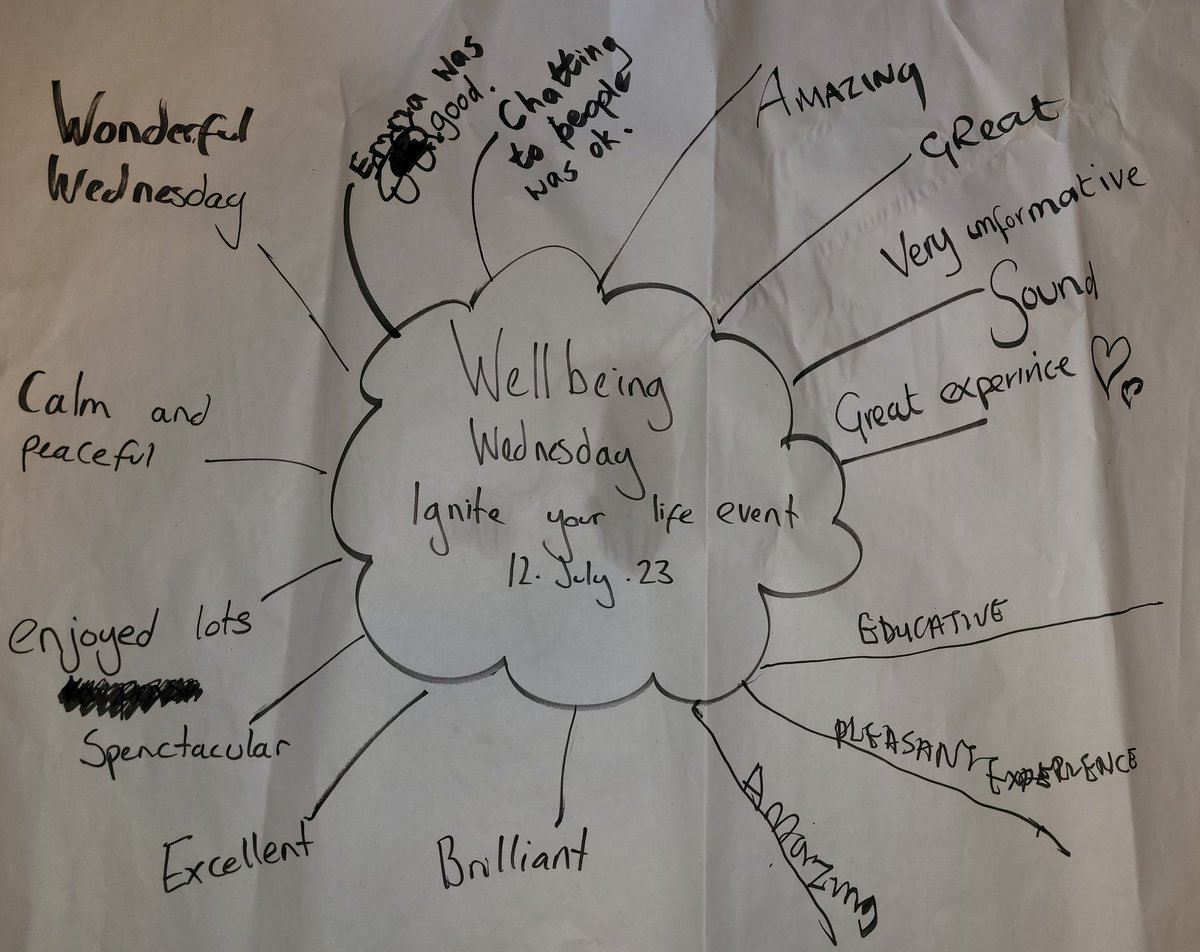 Wellbeing
Wednesday
Ignite your life event
12. July . 23
Wonderful
Wednesday
Emma was
good.
Chatting
to people
was ok.
AMAZING
GReat
Very informative
Sound
Great experince
EDUCATIVE
PLEASANT
EXPERIENCE
AMazing
Brilliant
Excellent
Spenctacular
enjoyed lots
Calm and
peaceful